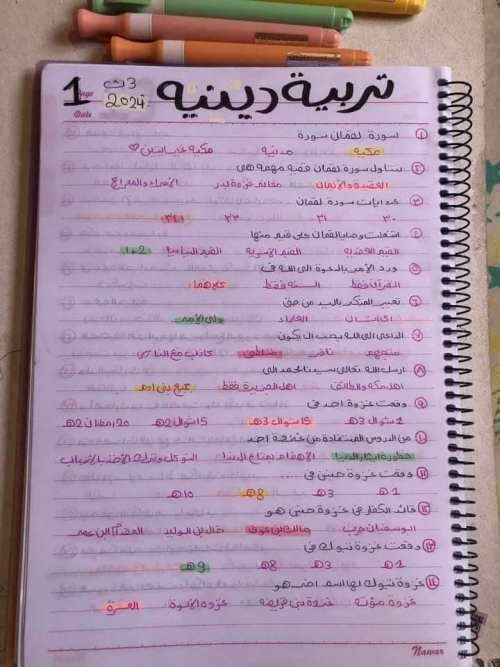 تربية دينيه
1 Page
Date
3ث
2024
① سورة لقمان سورة
مكية مدنية مكية غير ايتين
② تناول سورة لقمان قضية مهمة هى
العقيدة والإيمان غزوة بدر الإسراء والمعراج
③ عدد ايات سورة لقمان
٣٠ ٣١ ٣٣ ٣٤
④ اشتملت وصايا لقمان على قيم منها
القيم العقدية القيم الأسرية القيم السياسية 1+2
⑤ ورد الأمر بالدعوة الى الله فى
القرآن فقط السنة فقط كلاهما
⑥ تغيير المنكر باليد من حق
العلماء ولى الأمر
⑦ الداعى الى الله يجب ان يكون
متجهم نافر كاذب مع الناس
⑧ ارسل الله تعالى سيدنا محمد الى
اهل مكة والطائف اهل الجزيرة فقط جميع بنى ادم
⑨ وقعت غزوة احد فى
1 شوال 3هـ 15 شوال 3هـ 15 شوال 2هـ 20 رمضان 2هـ
⑩ من الدروس المستفادة من غزوة احد
خطورة إيثار الدنيا الاهتمام بمتاع الدنيا التوكل وترك الأخذ بالأسباب
⑪ وقعت غزوة حنين فى ....
1هـ 3هـ 8هـ 10هـ
⑫ قائد الكفار فى غزوة حنين هو
ابو سفيان بن حرب مالك بن عوف خالد بن الوليد
⑬ وقعت غزوة تبوك فى
1هـ 3هـ 8هـ 9هـ
⑭ غزوة تبوك لها اسم اخر هو
غزوة مؤتة غزوة بنى قريظة غزوة الأبوة العسرة
Nawar